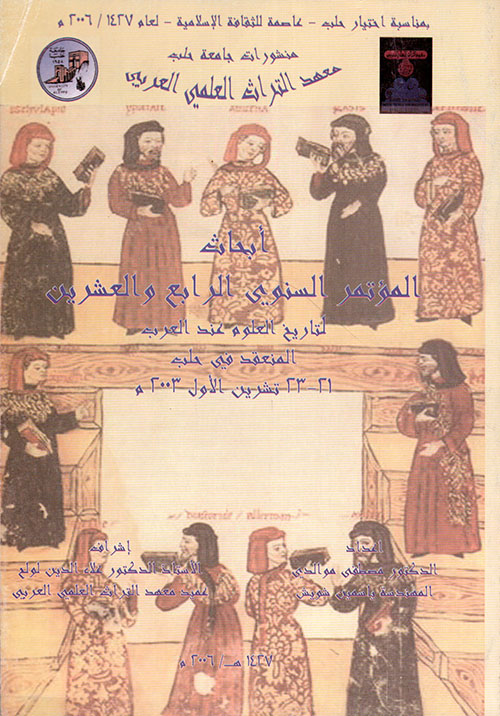 بمناسبة اختيار حلب - عاصمة للثقافة الإسلامية - لعام ١٤٢٧ / ٢٠٠٦ م
منشورات جامعة حلب
معهد التراث العلمي العربي
أبحاث
المؤتمر السنوي الرابع والعشرين
لتاريخ العلوم عند العرب
المنعقد في حلب
٢١-٢٣ تشرين الأول ٢٠٠٣ م
إعداد
الدكتور مصطفى موالدي
المهندسة ياسمين شويش
إشراف
الأستاذ الدكتور علاء الدين لولح
عميد معهد التراث العلمي العربي
١٤٢٧ هـ/ ٢٠٠٦ م